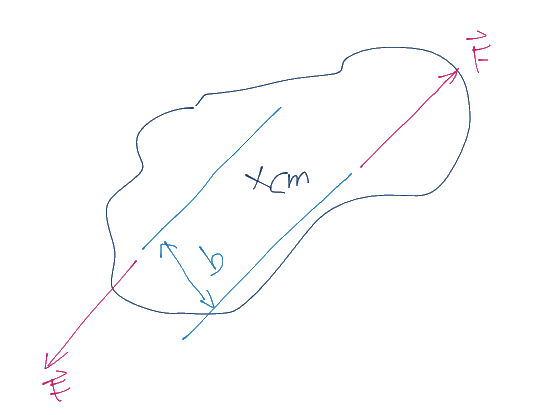 F
cm
b
F